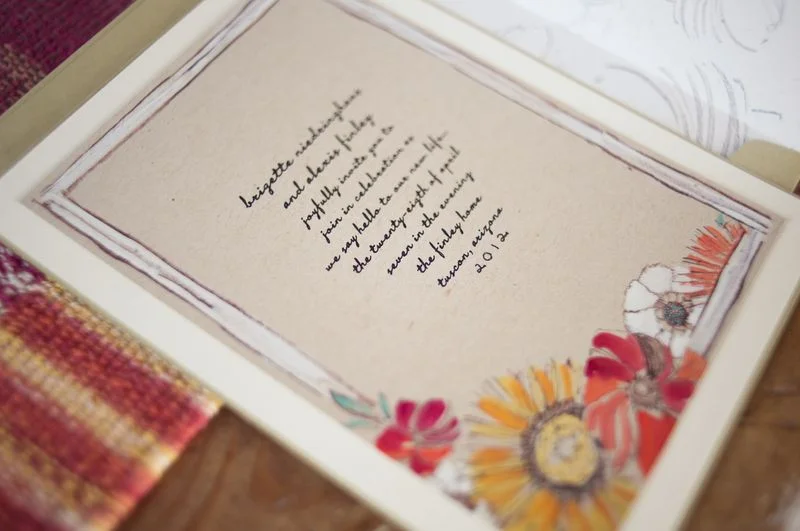 brigette niedringhaus
and alexis finley
joyfully invite you to
join in celebration as
we say hello to our new life.
the twenty-eigth of april
seven in the evening
the finley home
tuscon, arizona
2012